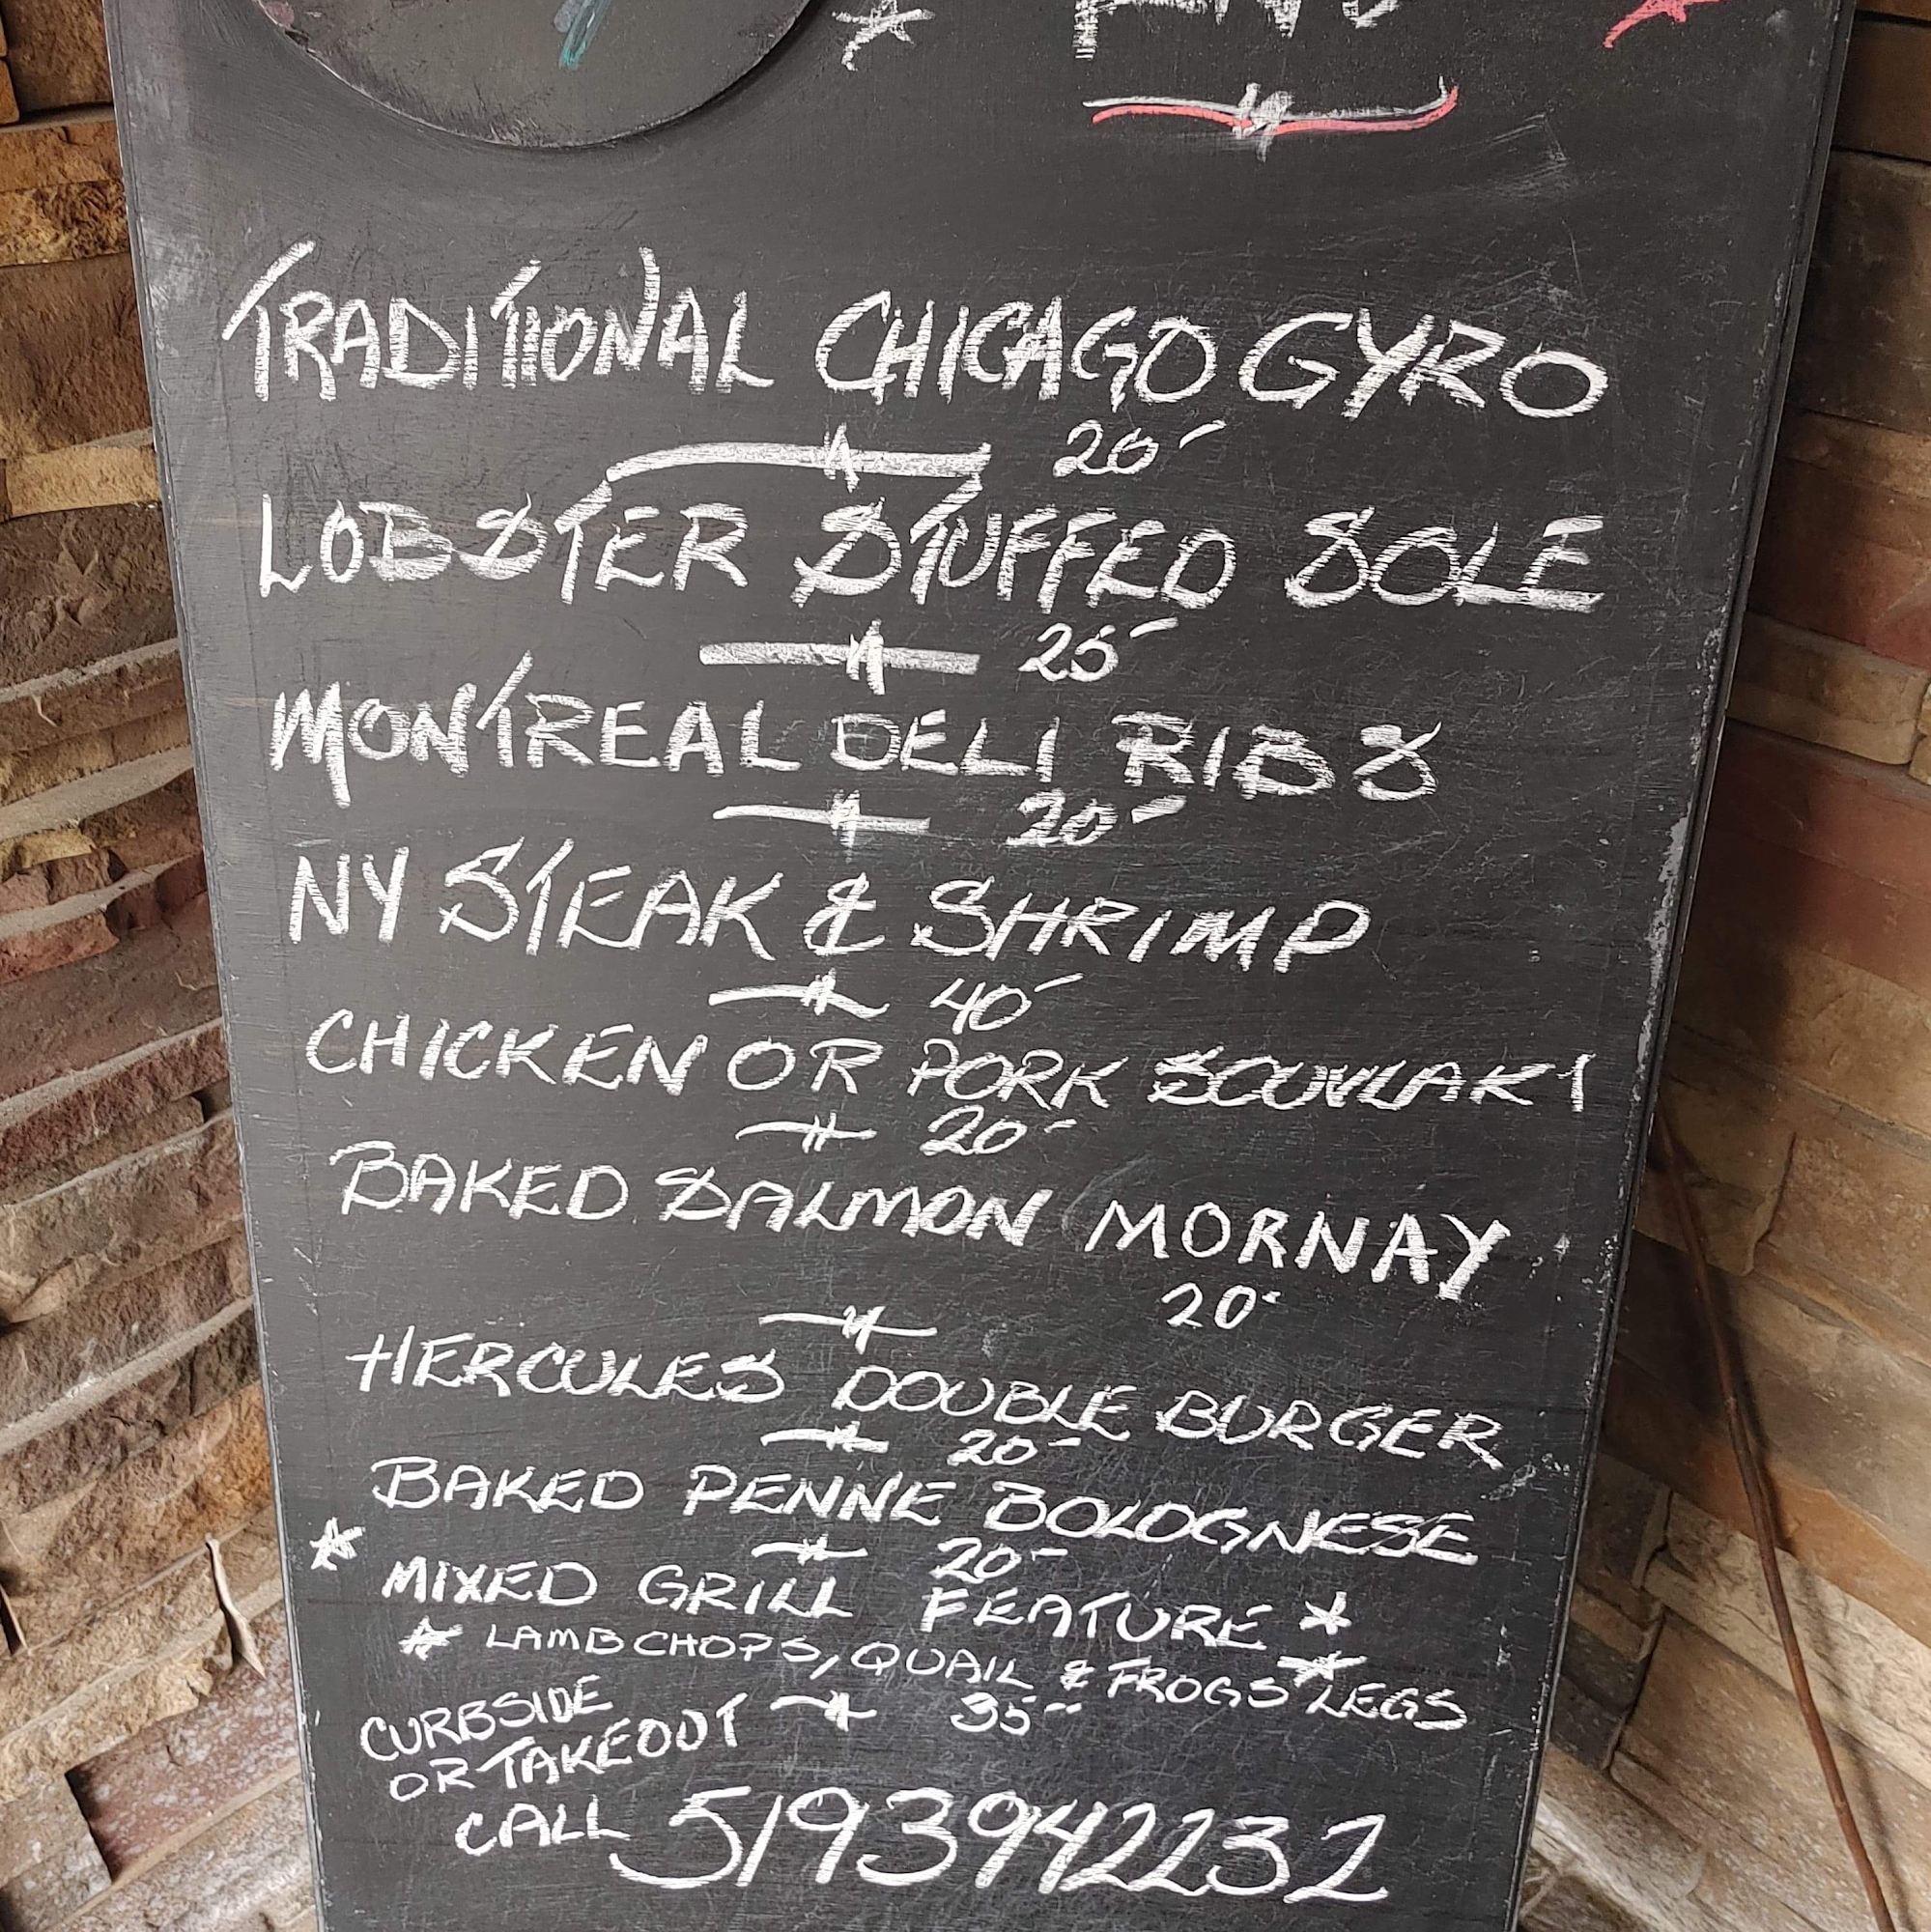 TRADITIONAL CHICAGO GYRO
20-
LOBSTER STUFFED SOLE
25-
MONTREAL DELI RIBS
20-
NY STEAK & SHRIMP
40-
CHICKEN OR PORK SOUVLAKI
20-
BAKED SALMON MORNAY
20-
HERCULES DOUBLE BURGER
20-
BAKED PENNE BOLOGNESE
20-
MIXED GRILL FEATURE
LAMB CHOPS, QUAIL & FROGS LEGS
35-
CURBSIDE
OR TAKEOUT
CALL 5193942232